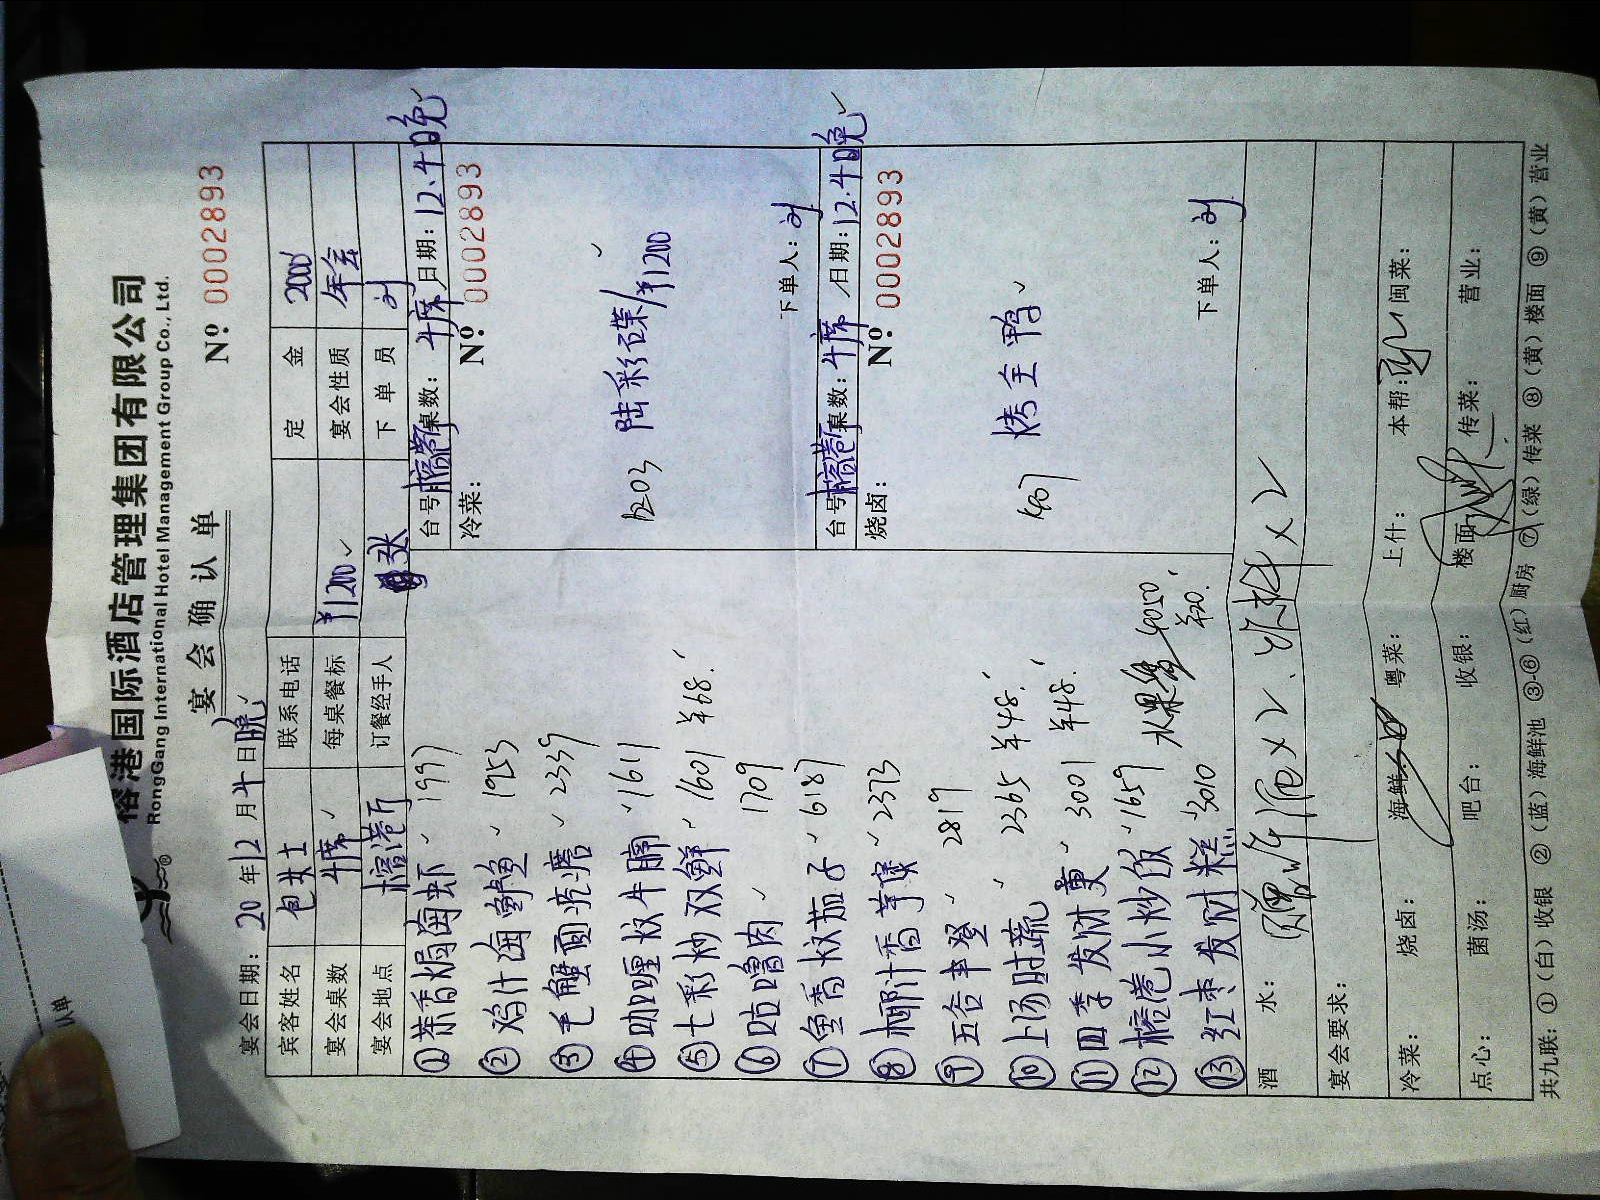 榕港国际酒店管理集团有限公司
RongGang International Hotel Management Group Co., Ltd.
宴会确认单
宴会日期: 20 年12月4日晚 Nº 0002893
宾客姓名 包女士 联系电话 定金 2000
宴会桌数 4席 每桌餐标 ¥1200 宴会性质 年会
宴会地点 榕港厅 订餐经手人 张 下单员 刘
① 茶香焗海虾 1997
② 鸡汁海鲈鱼 1953
③ 毛蟹面疙瘩 2339
④ 咖喱炆牛腩 1611
⑤ 七彩炒双鲜 1601 ¥68.
⑥ 咕噜肉 1709
⑦ 鱼香炆茄子 6187
⑧ 椰汁香芋煲 2373
⑨ 五谷丰登 2819
⑩ 上汤时蔬 2365 ¥48.
⑪ 四季发财羹 3001 ¥48.
⑫ 榕港小炒饭 1659 水果盘 4050 ¥20.
⑬ 红枣发财糕 3010
台号: 榕港厅 桌数: 4席 日期: 12.4日晚
冷菜: Nº 0002893
1203 陆彩碟/¥1200
下单人: 刘
台号: 榕港厅 桌数: 4席 日期: 12.4日晚
烧卤: Nº 0002893
烤全鸭
下单人: 刘
酒水:
宴会要求:
冷菜: 烧卤: 海鲜: 粤菜: 上什: 本帮: 闽菜:
点心: 菌汤: 吧台: 收银: 楼面: 传菜: 营业:
共九联: ①(白)收银 ②(蓝)海鲜池 ③-⑥(红)厨房 ⑦(绿)传菜 ⑧(黄)楼面 ⑨(黄)营业
认单